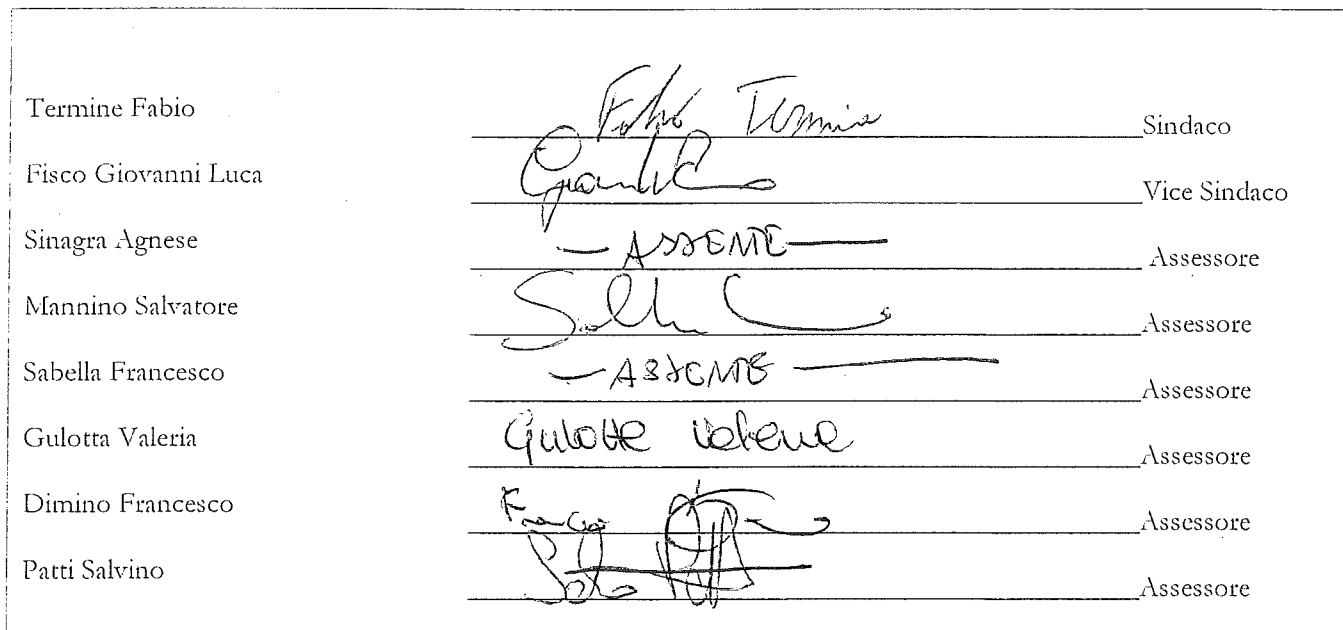 Termine Fabio Fabio Termine Sindaco
Fisco Giovanni Luca Vice Sindaco
Sinagra Agnese — ASSENTE — Assessore
Mannino Salvatore Assessore
Sabella Francesco — ASSENTE — Assessore
Gulotta Valeria Gulotta Valeria Assessore
Dimino Francesco Assessore
Patti Salvino Assessore